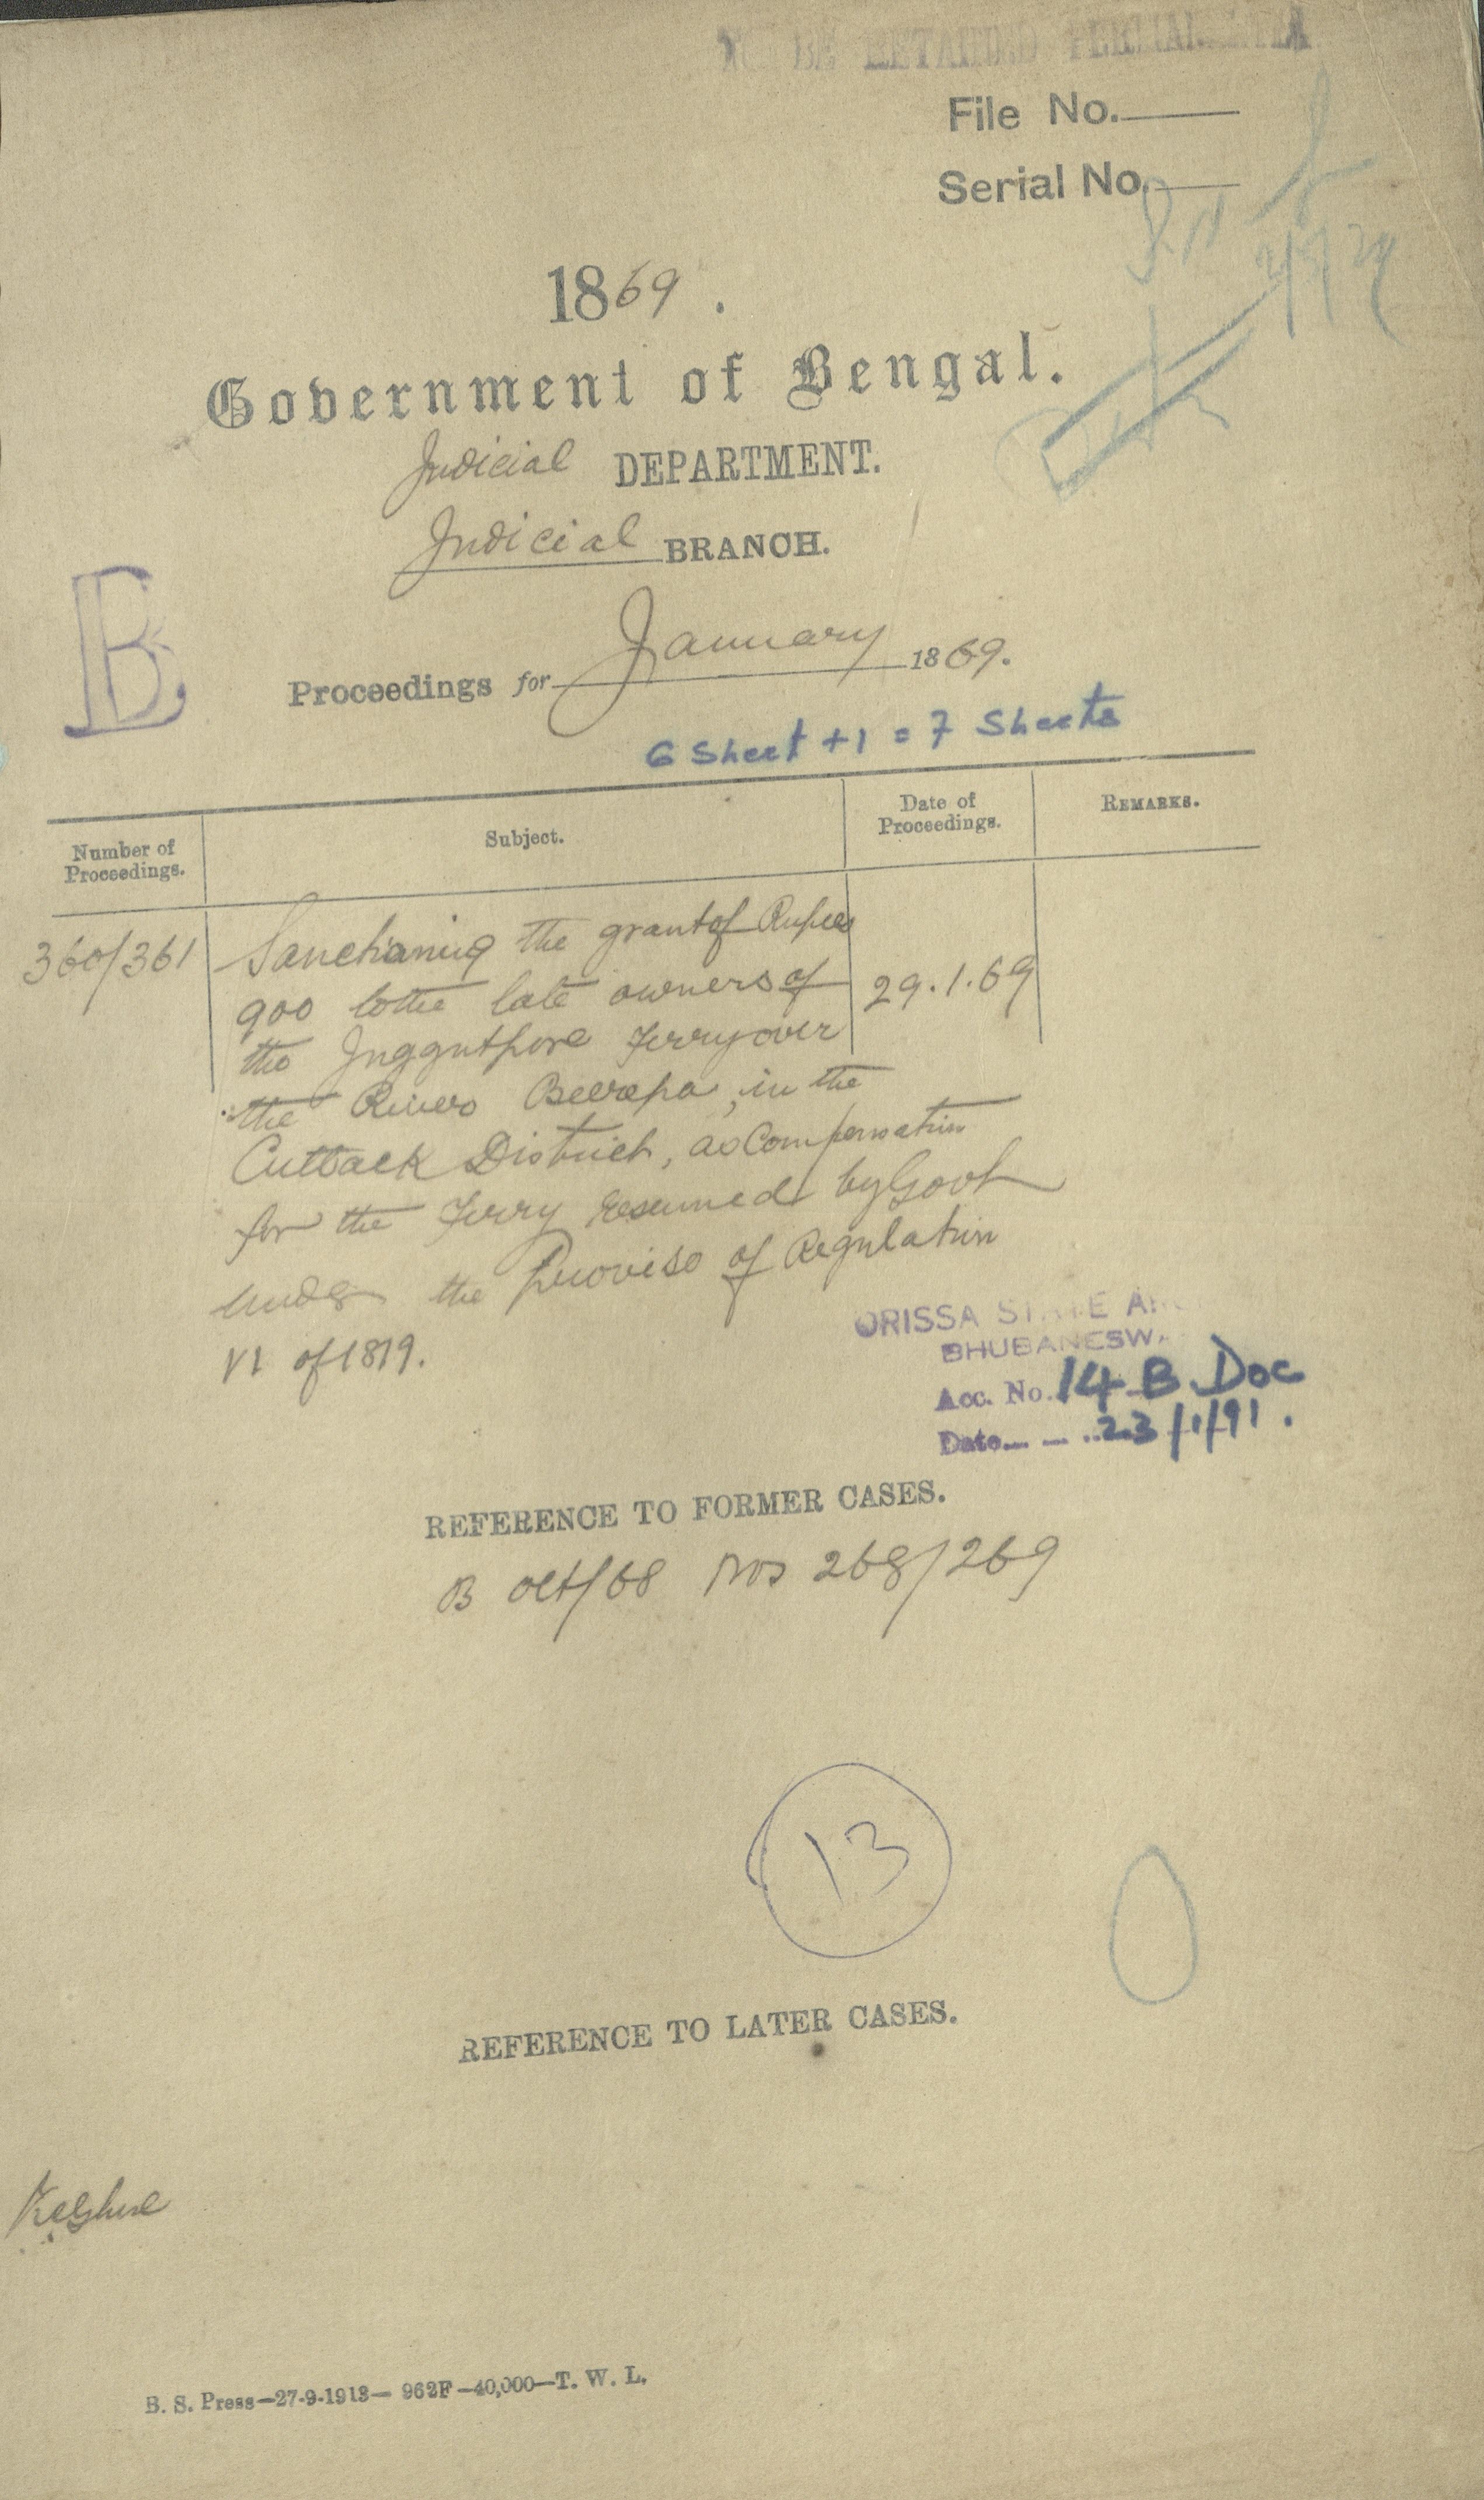 TO BE RETAINED PERMANENTLY
File No.
Serial No.
1869.
Government of Bengal.
Judicial DEPARTMENT.
Judicial BRANCH.
B
Proceedings for January 1869.
6 Sheet + 1 = 7 Sheets
Number of Proceedings.
Subject.
Date of Proceedings.
REMARKS.
360/361
Sanctioning the grant of Rupees
900 to the late owners of
the Juggutpore Ferry over
the River Beerepa, in the
Cuttack District, as Compensation
for the Ferry resumed by Govt
under the Proviso of Regulation
VI of 1819.
29.1.69
ORISSA STATE AR
BHUBANESWA
Acc. No. 14 B Doc
Date 23/1/91.
REFERENCE TO FORMER CASES.
B Oct/68 Nos 268/269
13
REFERENCE TO LATER CASES.
B. S. Press—27-9-1913— 962F—40,000—T. W. L.